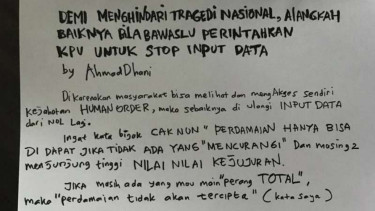 DEMI MENGHINDARI TRAGEDI NASIONAL, ALANGKAH
BAIKNYA BILA BAWASLU PERINTAHKAN
KPU UNTUK STOP INPUT DATA
by AhmadDhani
Dikarenakan masyarakat bisa melihat dan mengakses sendiri
kejahatan HUMAN ORDER, maka sebaiknya di ulangi INPUT DATA
dari NOL Lagi.
Ingat kata bijak CAK NUN "PERDAMAIAN HANYA BISA
DI DAPAT JIKA TIDAK ADA YANG "MENCURANGI" Dan masing2
menjunjung tinggi NILAI NILAI KEJUJURAN.
JIKA masih ada yang mau main "perang TOTAL",
maka "perdamaian tidak akan tercipta" (kata saya)